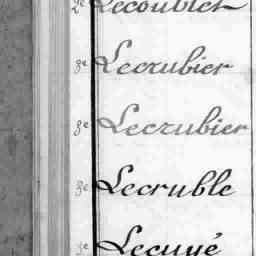 2e Lecoublet
3e Lecrubier
3e Lecrubier
3e Lecruble
3e Lecuyé